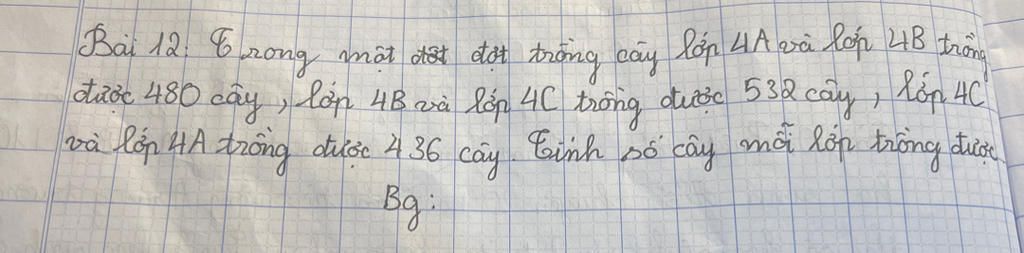 Bài 12: Trong một đợt trồng cây lớp 4A và lớp 4B trồng
được 480 cây, lớp 4B và lớp 4C trồng được 532 cây, lớp 4C
và lớp 4A trồng được 436 cây. Tính số cây mỗi lớp trồng được
Bg: